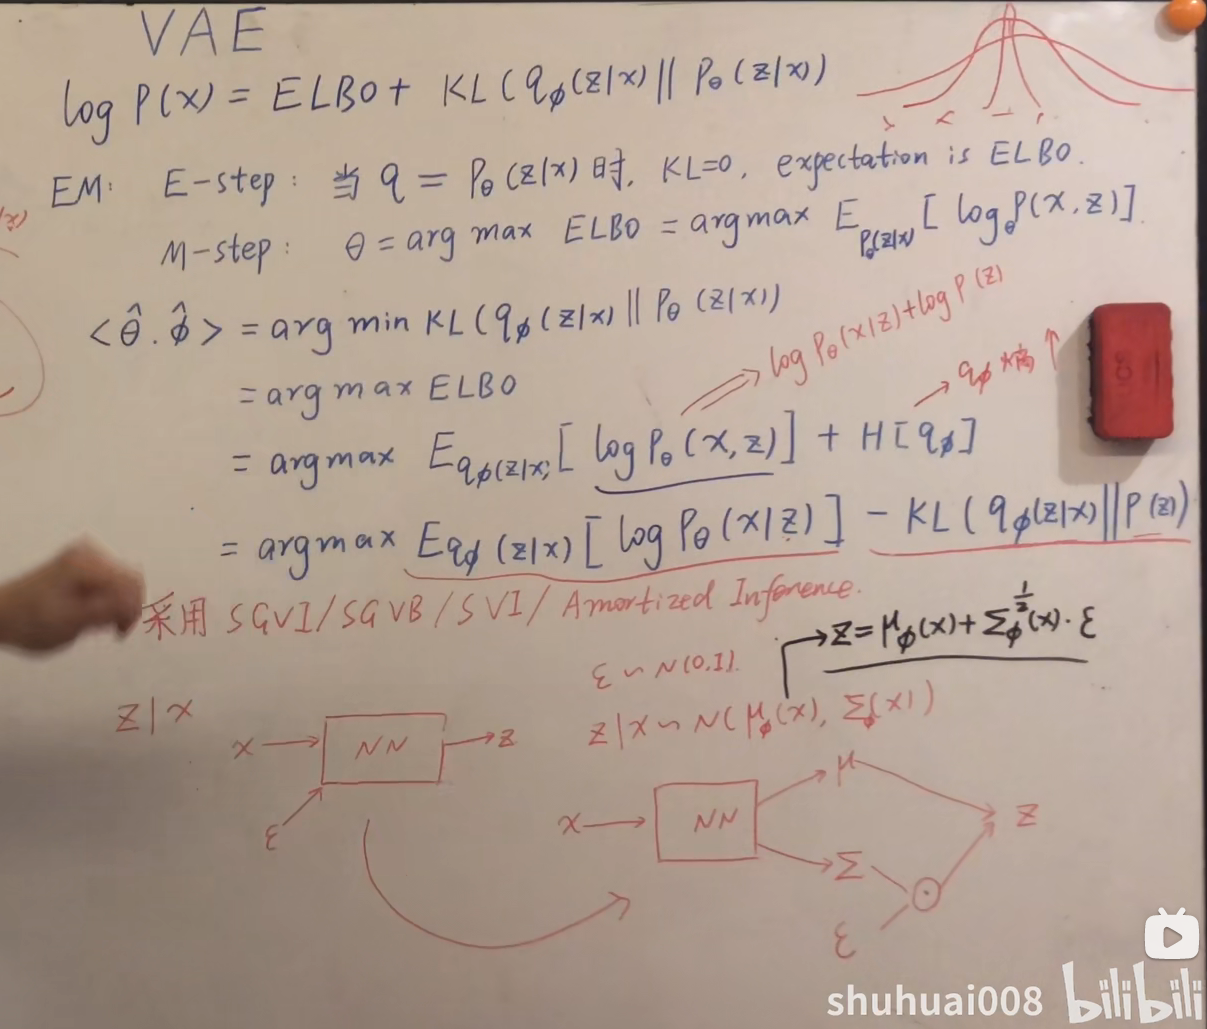 VAE
log P(x) = ELBO + KL(qϕ(z|x) || Pθ(z|x))
EM: E-step: 当 q = Pθ(z|x) 时, KL=0, expectation is ELBO.
M-step: θ = arg max ELBO = argmax E_Pθ(z|x) [log Pθ(x,z)].
<θ̂.ϕ̂> = arg min KL(qϕ(z|x) || Pθ(z|x))
log Pθ(x|z)+log P(z)
= arg max ELBO
qϕ 熵 ↑
= argmax E_qϕ(z|x) [log Pθ(x,z)] + H[qϕ]
= argmax E_qϕ(z|x) [log Pθ(x|z)] - KL(qϕ(z|x)||P(z))
采用 SGVI/SGVB/SVI/Amortized Inference.
→ z = μϕ(x) + Σϕ^½(x)·ε
ε ~ N(0,I).
z|x
z|x ~ N(μϕ(x), Σϕ(x))
x → NN → z
ε
x → NN
μ
z
Σ
⊙
ε
shuhuai008 bilibili